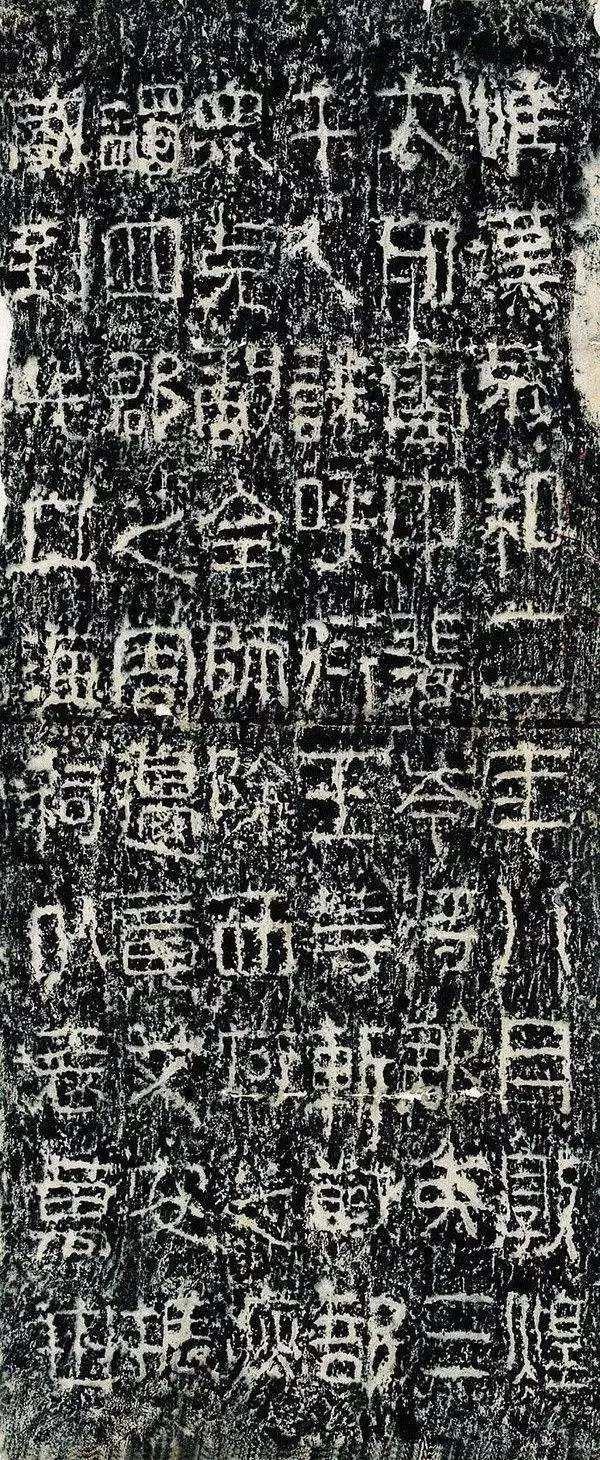 惟漢永和二年八月敦煌
太守雲中裴岑將郡兵三
千人誅呼衍王等斬馘部
衆克敵全師除西域之疢
蠲四郡之害邊竟艾安振
威到此立海祠以表萬世